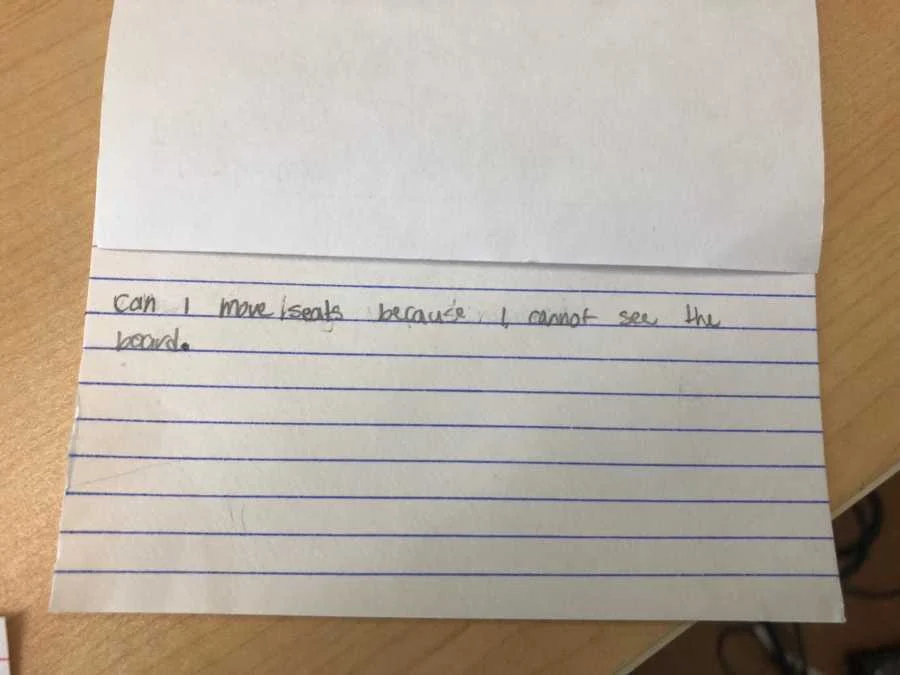 can I move seats because I cannot see the
board.